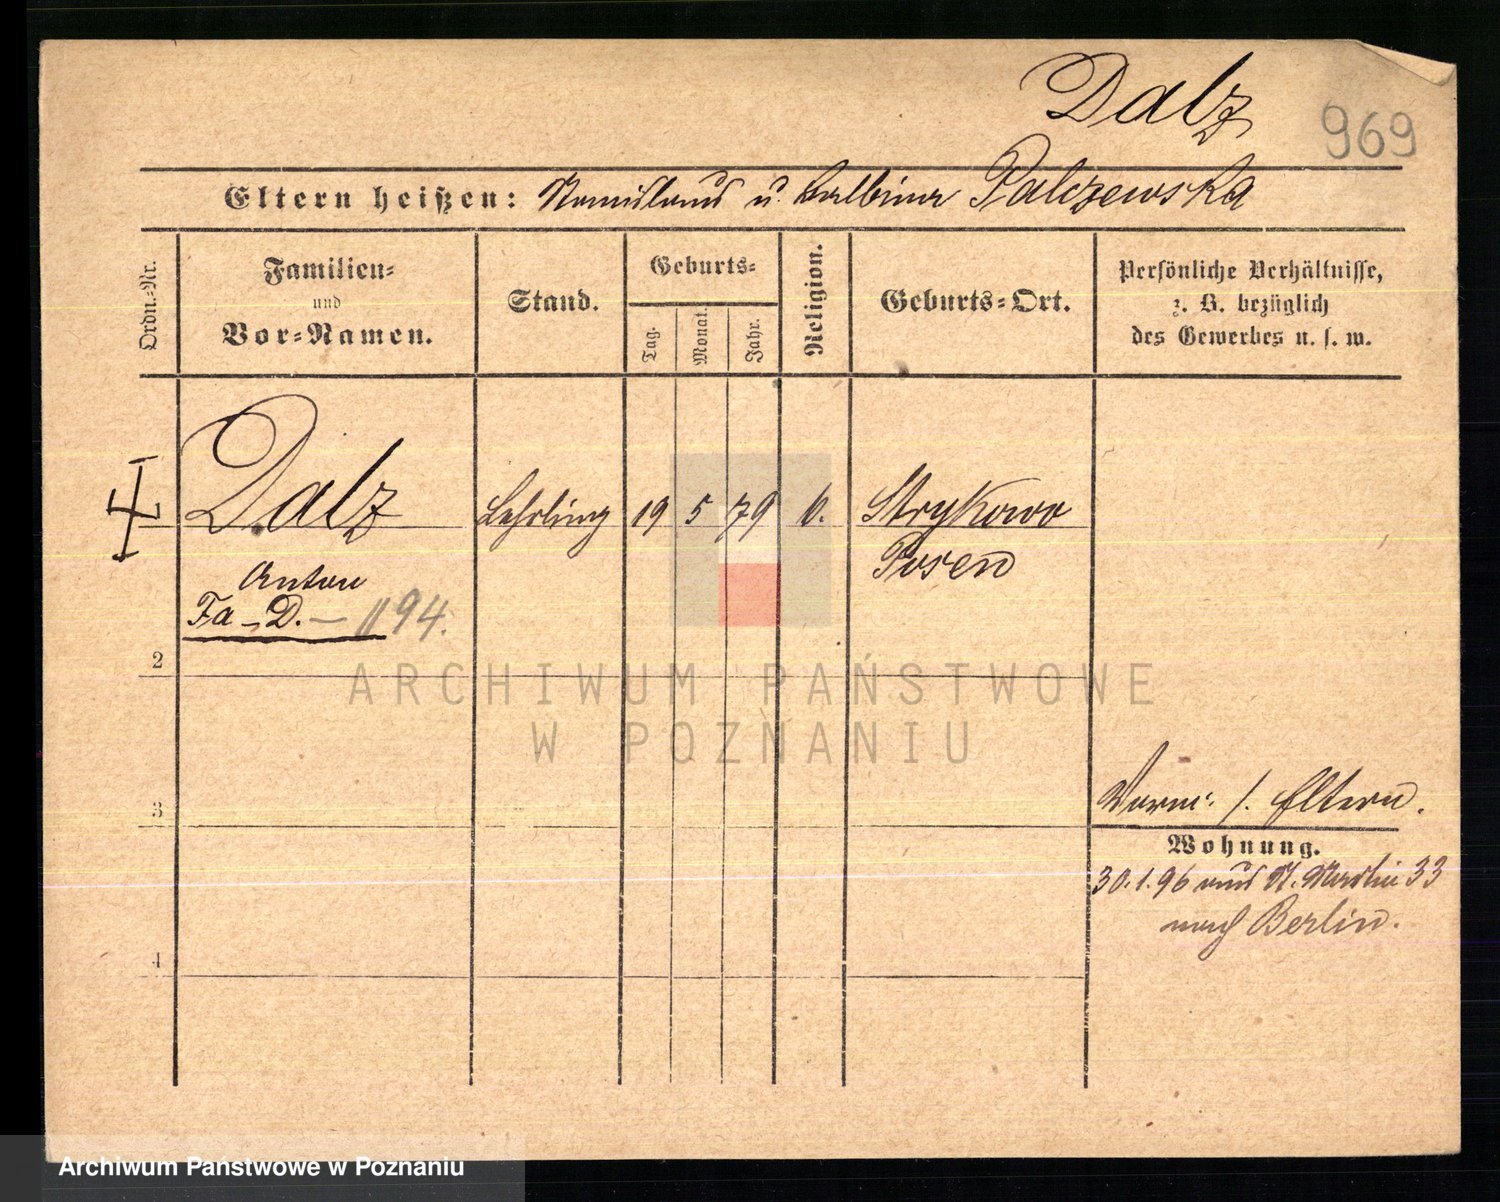 Dalz
969
Eltern heißen: Stanislaus u. Balbina Palczewska
Ordn.-Nr.
Familien-
und
Vor-Namen.
Stand.
Geburts-
Tag.
Monat.
Jahr.
Religion.
Geburts-Ort.
Persönliche Verhältnisse,
z. B. bezüglich
des Gewerbes u. s. w.
Dalz Lehrling 19 5 79 k. Strykowo
Anton Posen
Fa - D. - 94.
2
ARCHIWUM PAŃSTWOWE
W POZNANIU
3
/. Eltern.
Wohnung.
30.1.96 aus St. Martin 33
nach Berlin.
4
Archiwum Państwowe w Poznaniu